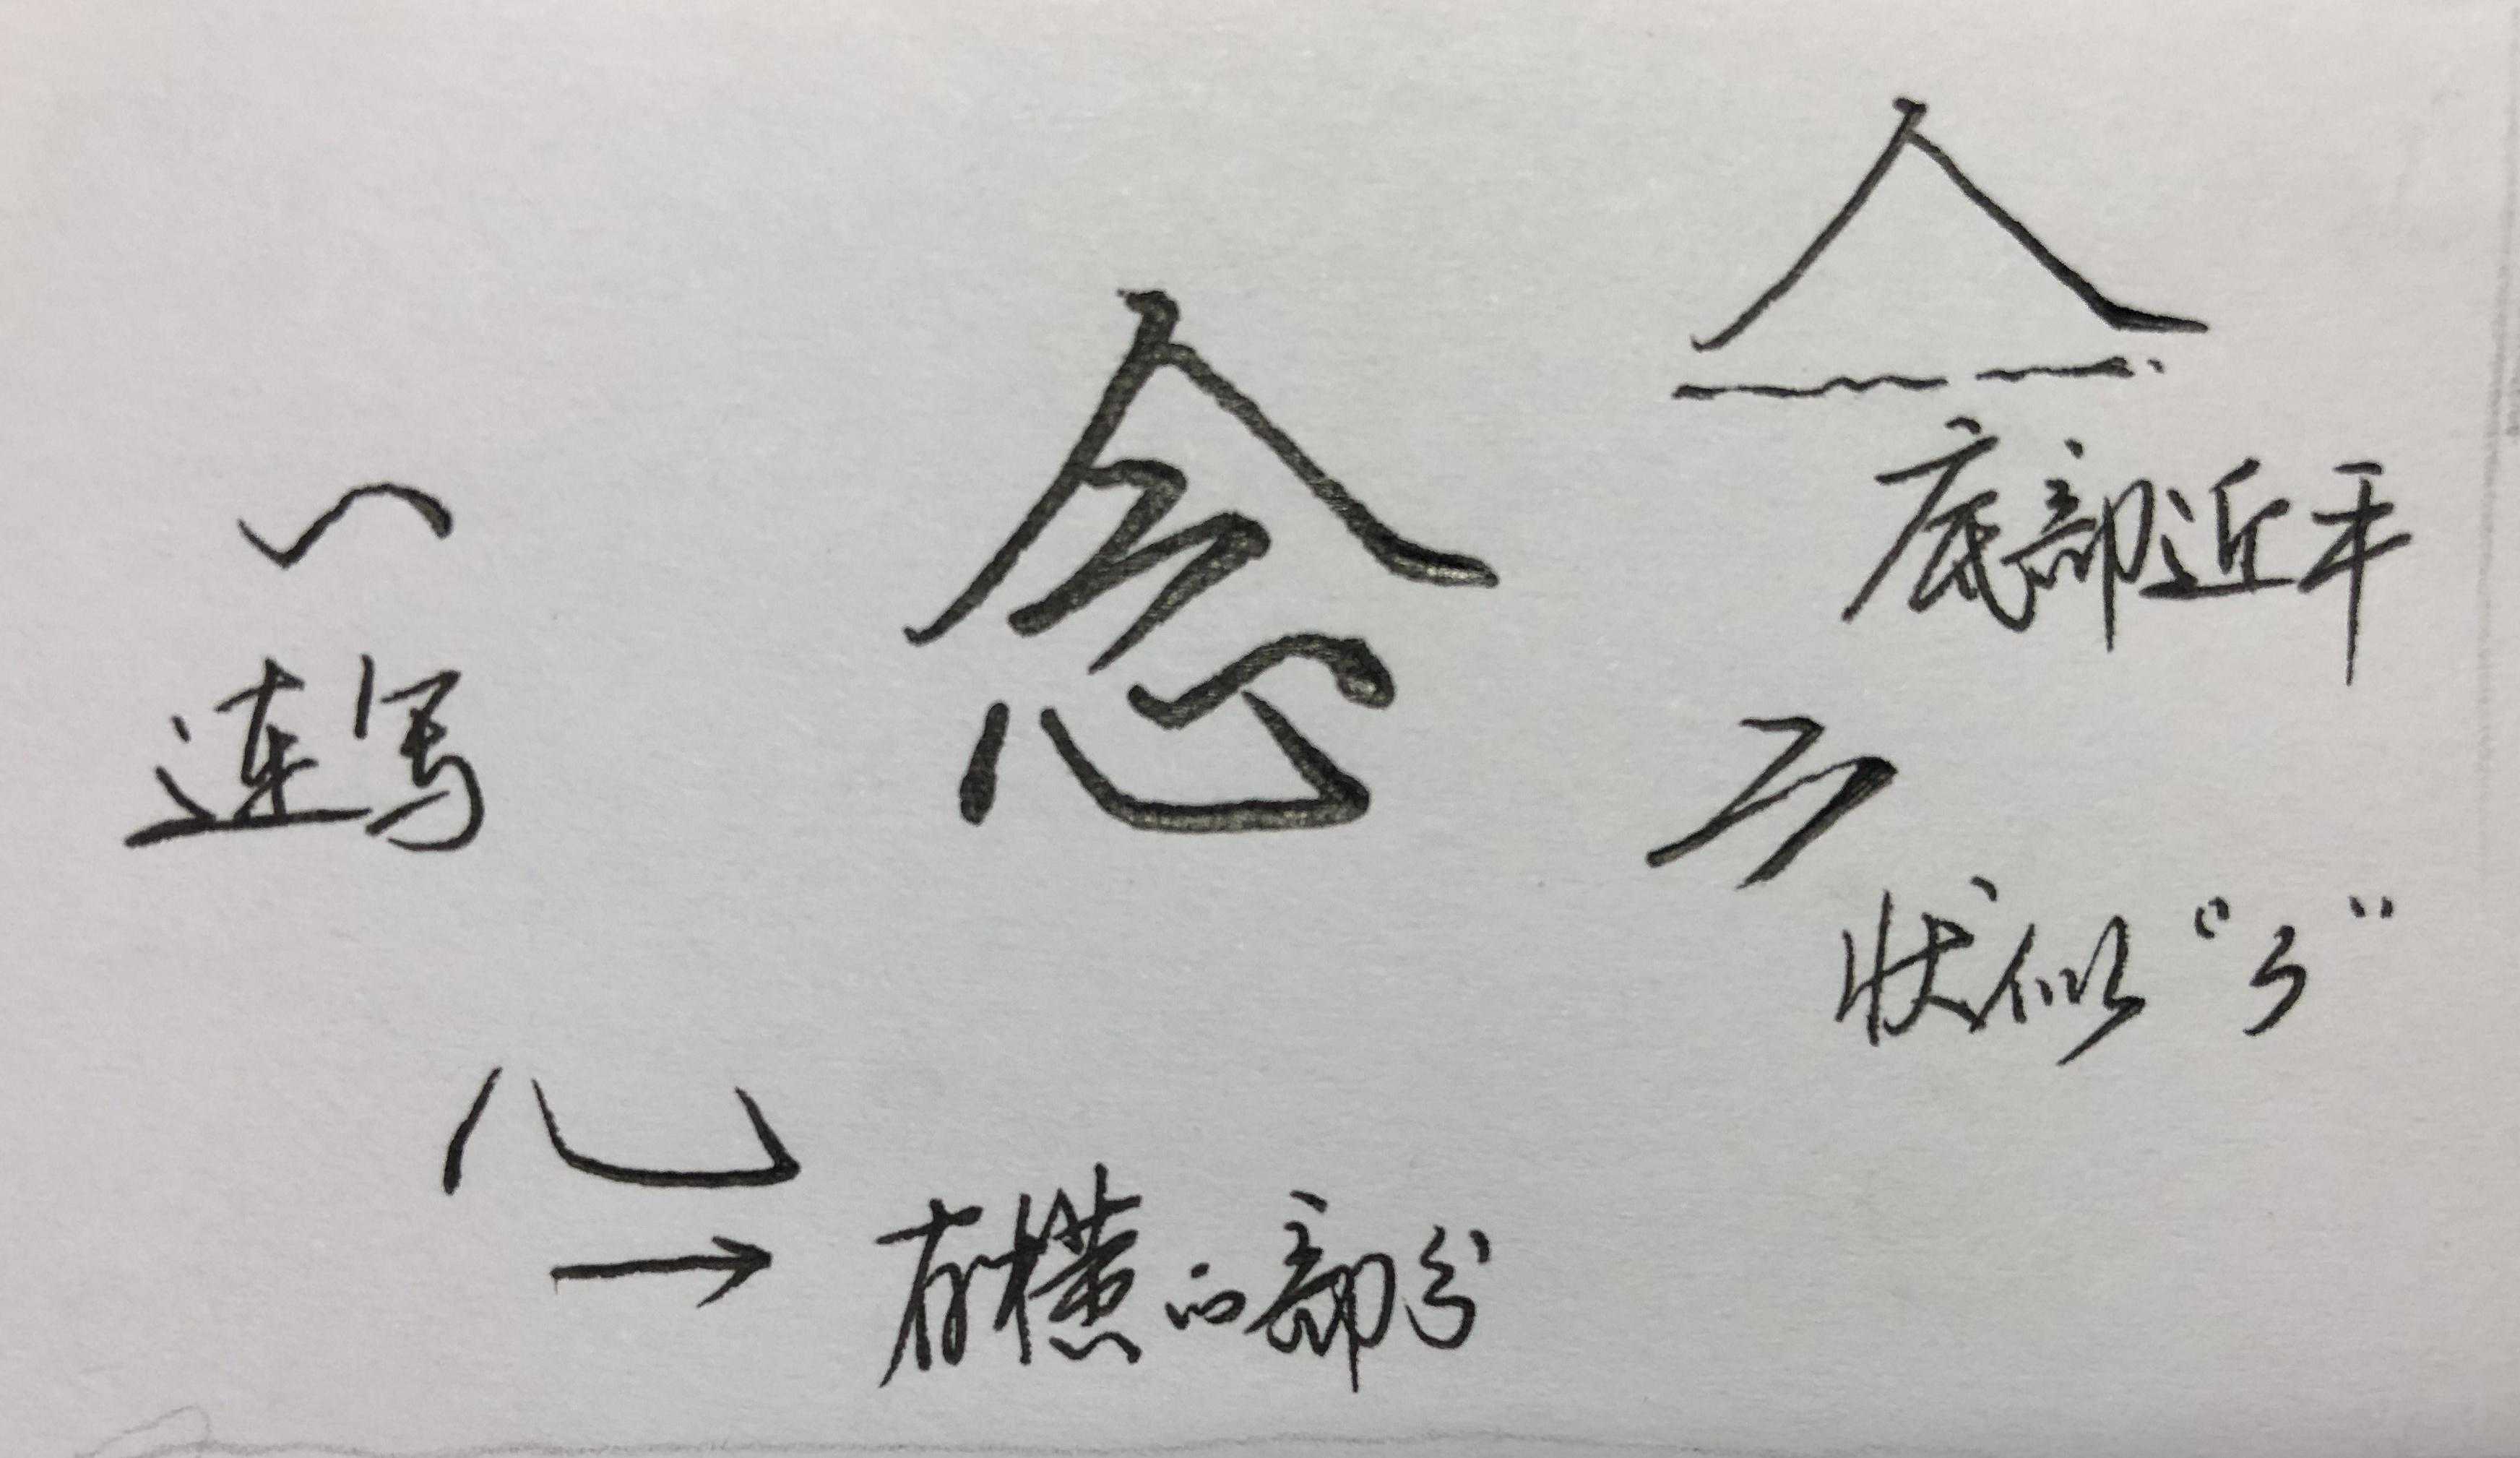 念
底部近平
连写
状似“3”
有横的部分